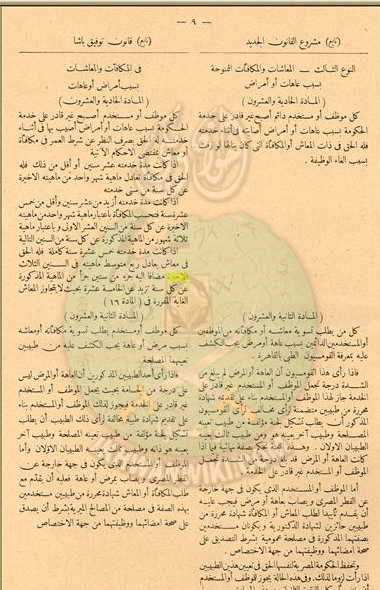 — ٩ —
(تابع) مشروع القانون الجديد
النوع الثالث — المعاشات والمكافآت الممنوحة
بسبب عاهات أو أمراض
(المادة الحادية والعشرون)
كل موظف أو مستخدم دائم أصبح غير قادر على خدمة
الحكومة بسبب عاهات أو أمراض أصابته فى أثناء خدمته
فله الحق فى ذات المعاش أو المكافأة التى كان ينالها لو رفت
بسبب الغاء الوظيفة .
(المادة الثانية والعشرون)
كل من يطلب تسوية معاشه أو مكافأته من الموظفين
أو المستخدمين الدائمين بسبب عاهة أو مرض يجب الكشف
عليه بمعرفة القومسيون الطبى بالقاهرة .
فاذا رأى هذا القومسيون أن العاهة أو المرض لم يبلغ من
الشدة درجة تجعل الموظف أو المستخدم غير قادر على
الخدمة جاز لهذا الموظف أو المستخدم بناء على تقديمه شهادة
محررة من طبيبين متضمنة لرأى مخالف لرأى القومسيون
المذكور أن يطلب تشكيل لجنة مؤلفة من طبيب تعينه
المصلحة وطبيب آخر يعينه هو ومن طبيب ثالث يعينه
الطبيبان الأولان . وهذه اللجنة تحكم بصفة نهائية فيما اذا
كانت العاهة أو المرض قد بلغ من الشدة درجة تجعل
الموظف أو المستخدم غير قادر على الخدمة .
أما الموظف أو المستخدم الذى يكون فى جهة خارجة
عن القطر المصرى ويصاب بعاهة أو مرض فيجب عليه
أن يقدم تأييدا لطلب المعاش أو المكافأة شهادة محررة من
طبيبين حائزين لشهادة الدكتورية ويكونان مستخدمين
بصفتهما المذكورة فى مصلحة عمومية بشرط التصديق
على صحة امضائهما ووظيفتهما من جهة الاختصاص .
وتحفظ الحكومة المصرية لنفسها الحق فى تعيين هذين الطبيبين
اذا رأت لزوما لذلك . وفى هذه الحالة يجوز للموظف أو المستخدم
(تابع) قانون توفيق باشا
فى المكافآت والمعاشات
بسبب أمراض أو عاهات
(المادة الحادية والعشرون)
كل موظف أو مستخدم أصبح غير قادر على خدمة
الحكومة بسبب عاهات أو أمراض أصيب بها فى أثناء
خدمته له الحق بصرف النظر عن شرط العمر فى مكافأة
أو معاش بمقتضى الاحكام الآتية
اذا كانت مدة خدمته عشر سنين أو أقل من ذلك فله
الحق فى مكافأة تعادل ماهية شهر واحد من ماهيته الاخيرة
عن كل سنة من سنى خدمته
اذا كانت مدة خدمته أزيد من عشر سنين وأقل من خمس
عشرة سنة فتحسب المكافأة باعتبار ماهية شهر واحد من ماهيته
الاخيرة عن كل سنة من السنين العشر الاولى وباعتبار ماهية
ثلاثة شهور من الماهية المذكورة عن كل سنة من السنين التالية
اذا كانت مدة خدمته خمس عشرة سنة كاملة فله الحق
فى معاش يعادل ربع متوسط ماهيته فى السنين الثلاث
الاخيرة مضافا اليه جزء من ستين جزأ من الماهية المذكورة
عن كل سنة تزيد عن الخامسة عشرة بحيث لا يتجاوز المعاش
الغاية المقررة فى (المادة ١٦)
(المادة الثانية والعشرون)
كل موظف أو مستخدم يطلب تسوية مكافأته أو معاشه
بسبب عاهة أو مرض يجب الكشف عليه من طبيبين
تعينهما المصلحة
فاذا رأى أحد الطبيبين المذكورين أن العاهة أو المرض ليس
على درجة من الجسامة بحيث يجعل الموظف أو المستخدم
غير قادر على الخدمة فيجوز لذلك الموظف أو المستخدم بناء
على تقديم شهادة طبية مخالفة لرأى ذلك الطبيب أن يطلب
تشكيل لجنة مؤلفة من طبيب تعينه المصلحة وطبيب آخر
يعينه هو ذاته وطبيب ثالث يعينه الطبيبان الاولان وأما
الموظف أو المستخدم الذى يكون فى جهة خارجة عن
القطر المصرى ويصاب بمرض أو عاهة فعليه أن يقدم مع
طلب المكافأة أو المعاش شهادة محررة من طبيبين مستخدمين
بهذه الصفة فى مصلحة من المصالح الميرية بشرط أن يصدق
على صحة امضائهما ووظيفتهما من جهة الاختصاص